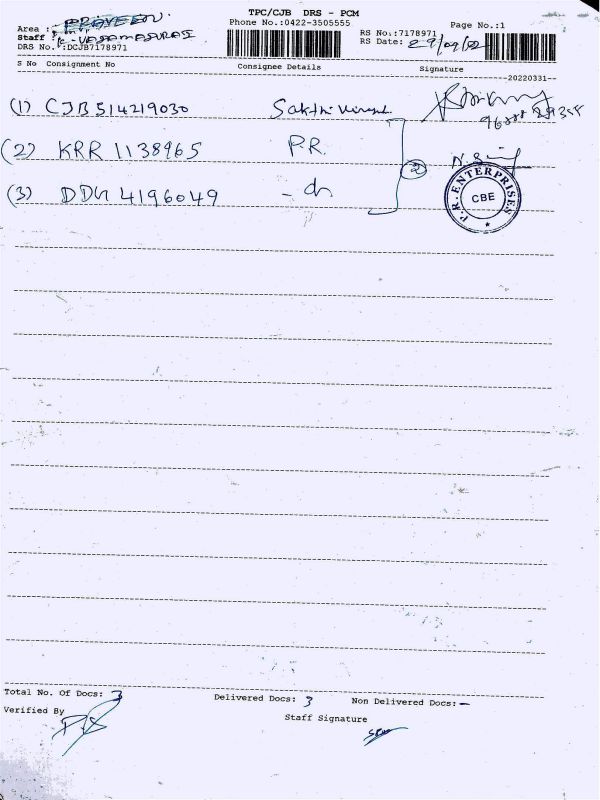 TPC/CJB DRS - PCM
Phone No.:0422-3505555
Page No.:1
Area :
Staff :
DRS No.:DCJB7178971
RS No.:7178971
RS Date: 29/09/22
S No Consignment No Consignee Details Signature
20220331
(1) CJB514219030
(2) KRR 1138965 P.R. 2
(3) DDG 4196049 - do
P.R. ENTERPRISES
CBE
Total No. Of Docs: 3 Delivered Docs: 3 Non Delivered Docs: —
Verified By
Staff Signature